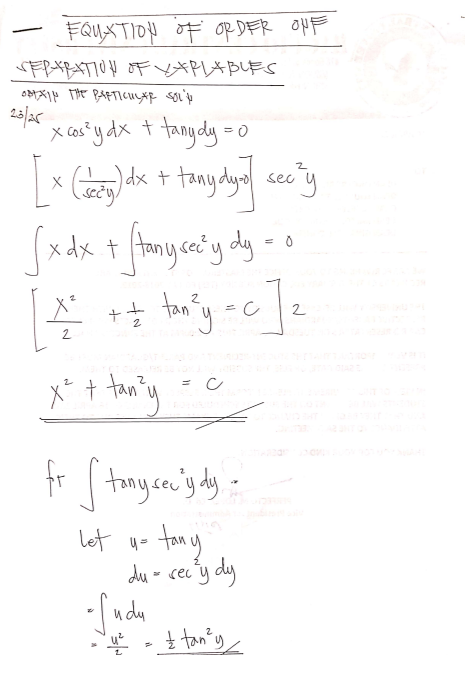 — EQUATION OF ORDER ONE
SEPARATION OF VARIABLES
OBTAIN THE PARTICULAR SOL'N
23/25
x cos²y dx + tany dy = 0
[ x (1/sec²y) dx + tany dy=0 ] sec²y
∫ x dx + ∫ tany sec²y dy = 0
[ x²/2 + 1/2 tan²y = C ] 2
x² + tan²y = C
fr ∫ tany sec²y dy =
Let u = tan y
du = sec²y dy
= ∫ u du
= u²/2 = 1/2 tan²y